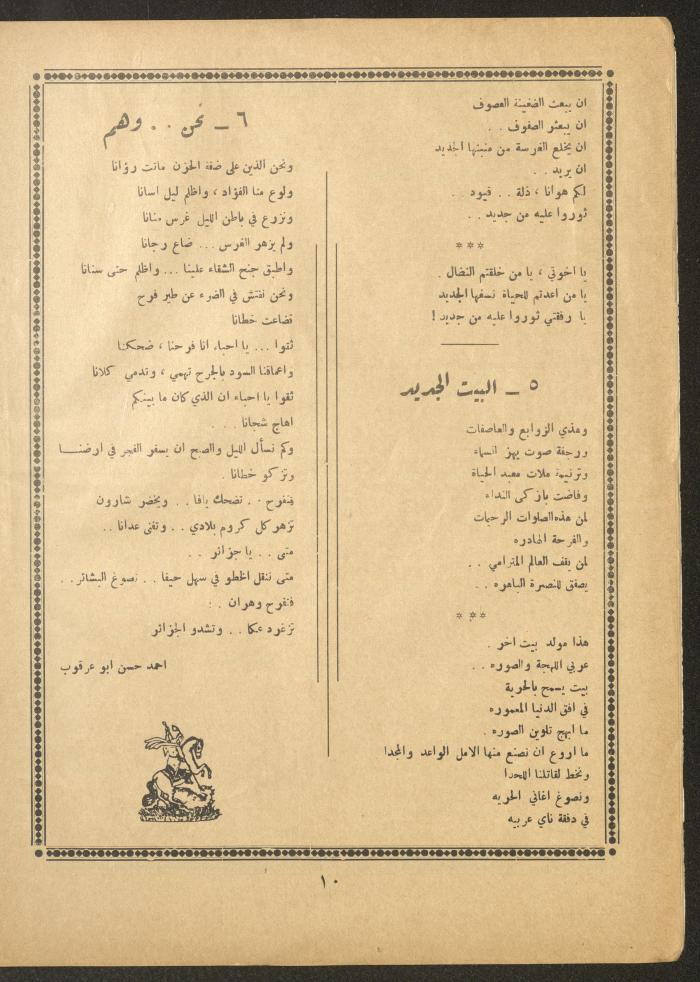 ان يبعث الضغينة العصوف
ان يبعثر الصفوف . .
ان يخلع الغرسة من منبتها الجديد
ان يريد . .
لكم هوانا ، ذلة . . قيود . .
ثوروا عليه من جديد . .
***
يا اخوتي ، يا من خلقتم النضال .
يا من اعدتم للحياة نسغها الجديد
يا رفقتي ثوروا عليه من جديد !
٥ ــ البيت الجديد
وهذي الزوابع والعاصفات
ورجفة صوت يهز السماء
وترنيمة ملأت معبد الحياة
وفاضت بازكى النداء
لمن هذه الصلوات الرحيمات
والفرحة الهادره
لمن يقف العالم المترامي . .
يصفق للنصرة الباهره . .
***
هذا مولد بيت اخر .
عربي اللهجة والصوره . .
بيت يسمح بالحرية
في افق الدنيا المعموره
ما ابهج تلوين الصوره .
ما اروع ان نصنع منها الامل الواعد والمجدا
ونخط لقاتلنا اللحدا
ونصوغ اغاني الحريه
في دفقة ناي عربيه
٦ ــ نحن . . وهم
ونحن الذين على ضفة الحزن ماتت رؤانا
ولوع منا الفؤاد ، واظلم ليل اسانا
ونزرع في باطن الليل غرس منانا
ولم يزهر الغرس ... ضاع رجانا
واطبق جنح الشقاء علينا ... واظلم حتى سنانا
ونحن نفتش في الضوء عن طير فرح
فضاعت خطانا
ثقوا ... يا احباء انا فرحنا ، ضحكنا
واعماقنا السود بالجرح تهمي ، وتدمي كلانا
ثقوا يا احباء ان الذي كان ما بينكم
اهاج شجانا . . .
وكم نسأل الليل والصبح ان يسفر الفجر في ارضنـــا
وتزكو خطانا .
فنفرح . . تضحك يافا . . ويخضر شارون
تزهر كل كروم بلادي . . وتغنى عدانا . .
متى . . يا جزائر . .
متى ننقل الخطو في سهل حيفا . . نصوغ البشائر . .
فنفرح وهران . .
تزغرد عكا . . وتشدو الجزائر
احمد حسن ابو عرقوب
١٠